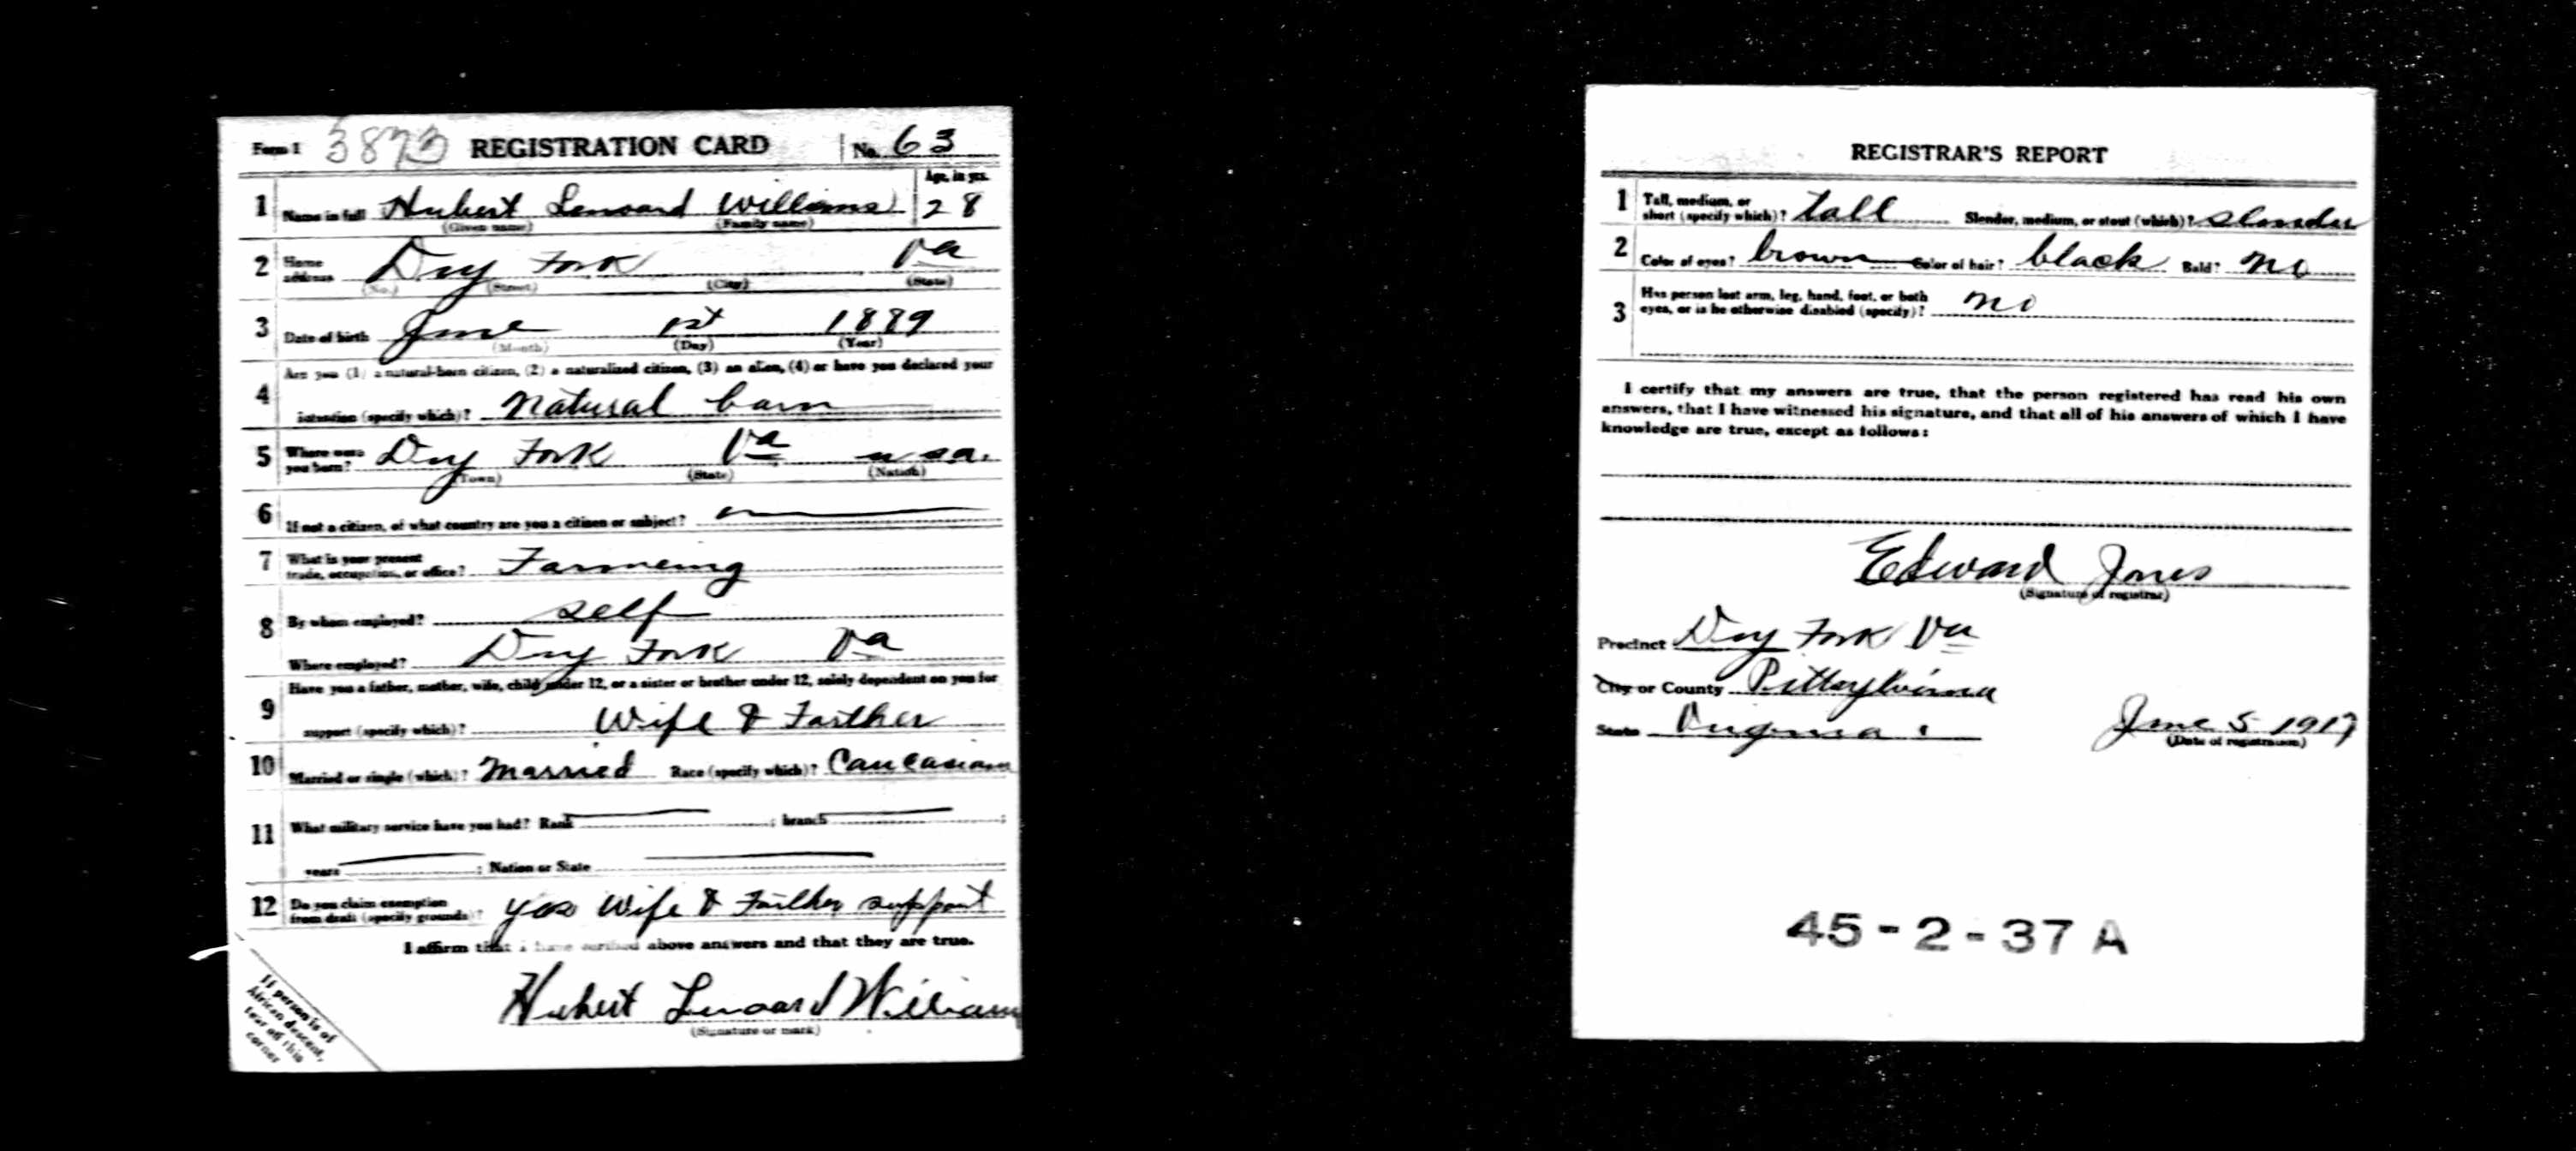 Form 1 3873 REGISTRATION CARD No. 63
Age, in yrs.
1 Name in full Hubert Lenoard Williams 28
(Given name) (Family name)
2 Home address Dry Fork Va
(No.) (Street) (City) (State)
3 Date of birth June 1st 1889
(Month) (Day) (Year)
Are you (1) a natural-born citizen, (2) a naturalized citizen, (3) an alien, (4) or have you declared your
4 intention (specify which)? Natural born
5 Where were you born? Dry Fork Va u sa.
(Town) (State) (Nation)
6 If not a citizen, of what country are you a citizen or subject?
7 What is your present trade, occupation, or office? Farmeing
8 By whom employed? self
Where employed? Dry Fork Va
Have you a father, mother, wife, child under 12, or a sister or brother under 12, solely dependent on you for
9 support (specify which)? Wife & Farther
10 Married or single (which)? Married Race (specify which)? Caucasian
11 What military service have you had? Rank ; branch ;
years ; Nation or State
12 Do you claim exemption from draft (specify grounds)? yes Wife & Farther support
I affirm that I have verified above answers and that they are true.
Hubert Lenoard Williams
(Signature or mark)
If person is of
African descent,
tear off this
corner
REGISTRAR'S REPORT
1 Tall, medium, or
short (specify which)? tall Slender, medium, or stout (which)? slender
2 Color of eyes? brown Color of hair? black Bald? no
3 Has person lost arm, leg, hand, foot, or both
eyes, or is he otherwise disabled (specify)? no
I certify that my answers are true, that the person registered has read his own
answers, that I have witnessed his signature, and that all of his answers of which I have
knowledge are true, except as follows:
Edward Jones
(Signature of registrar)
Precinct Dry Fork Va
City or County Pittsylvania
State Virginia June 5 1917
(Date of registration)
45-2-37 A